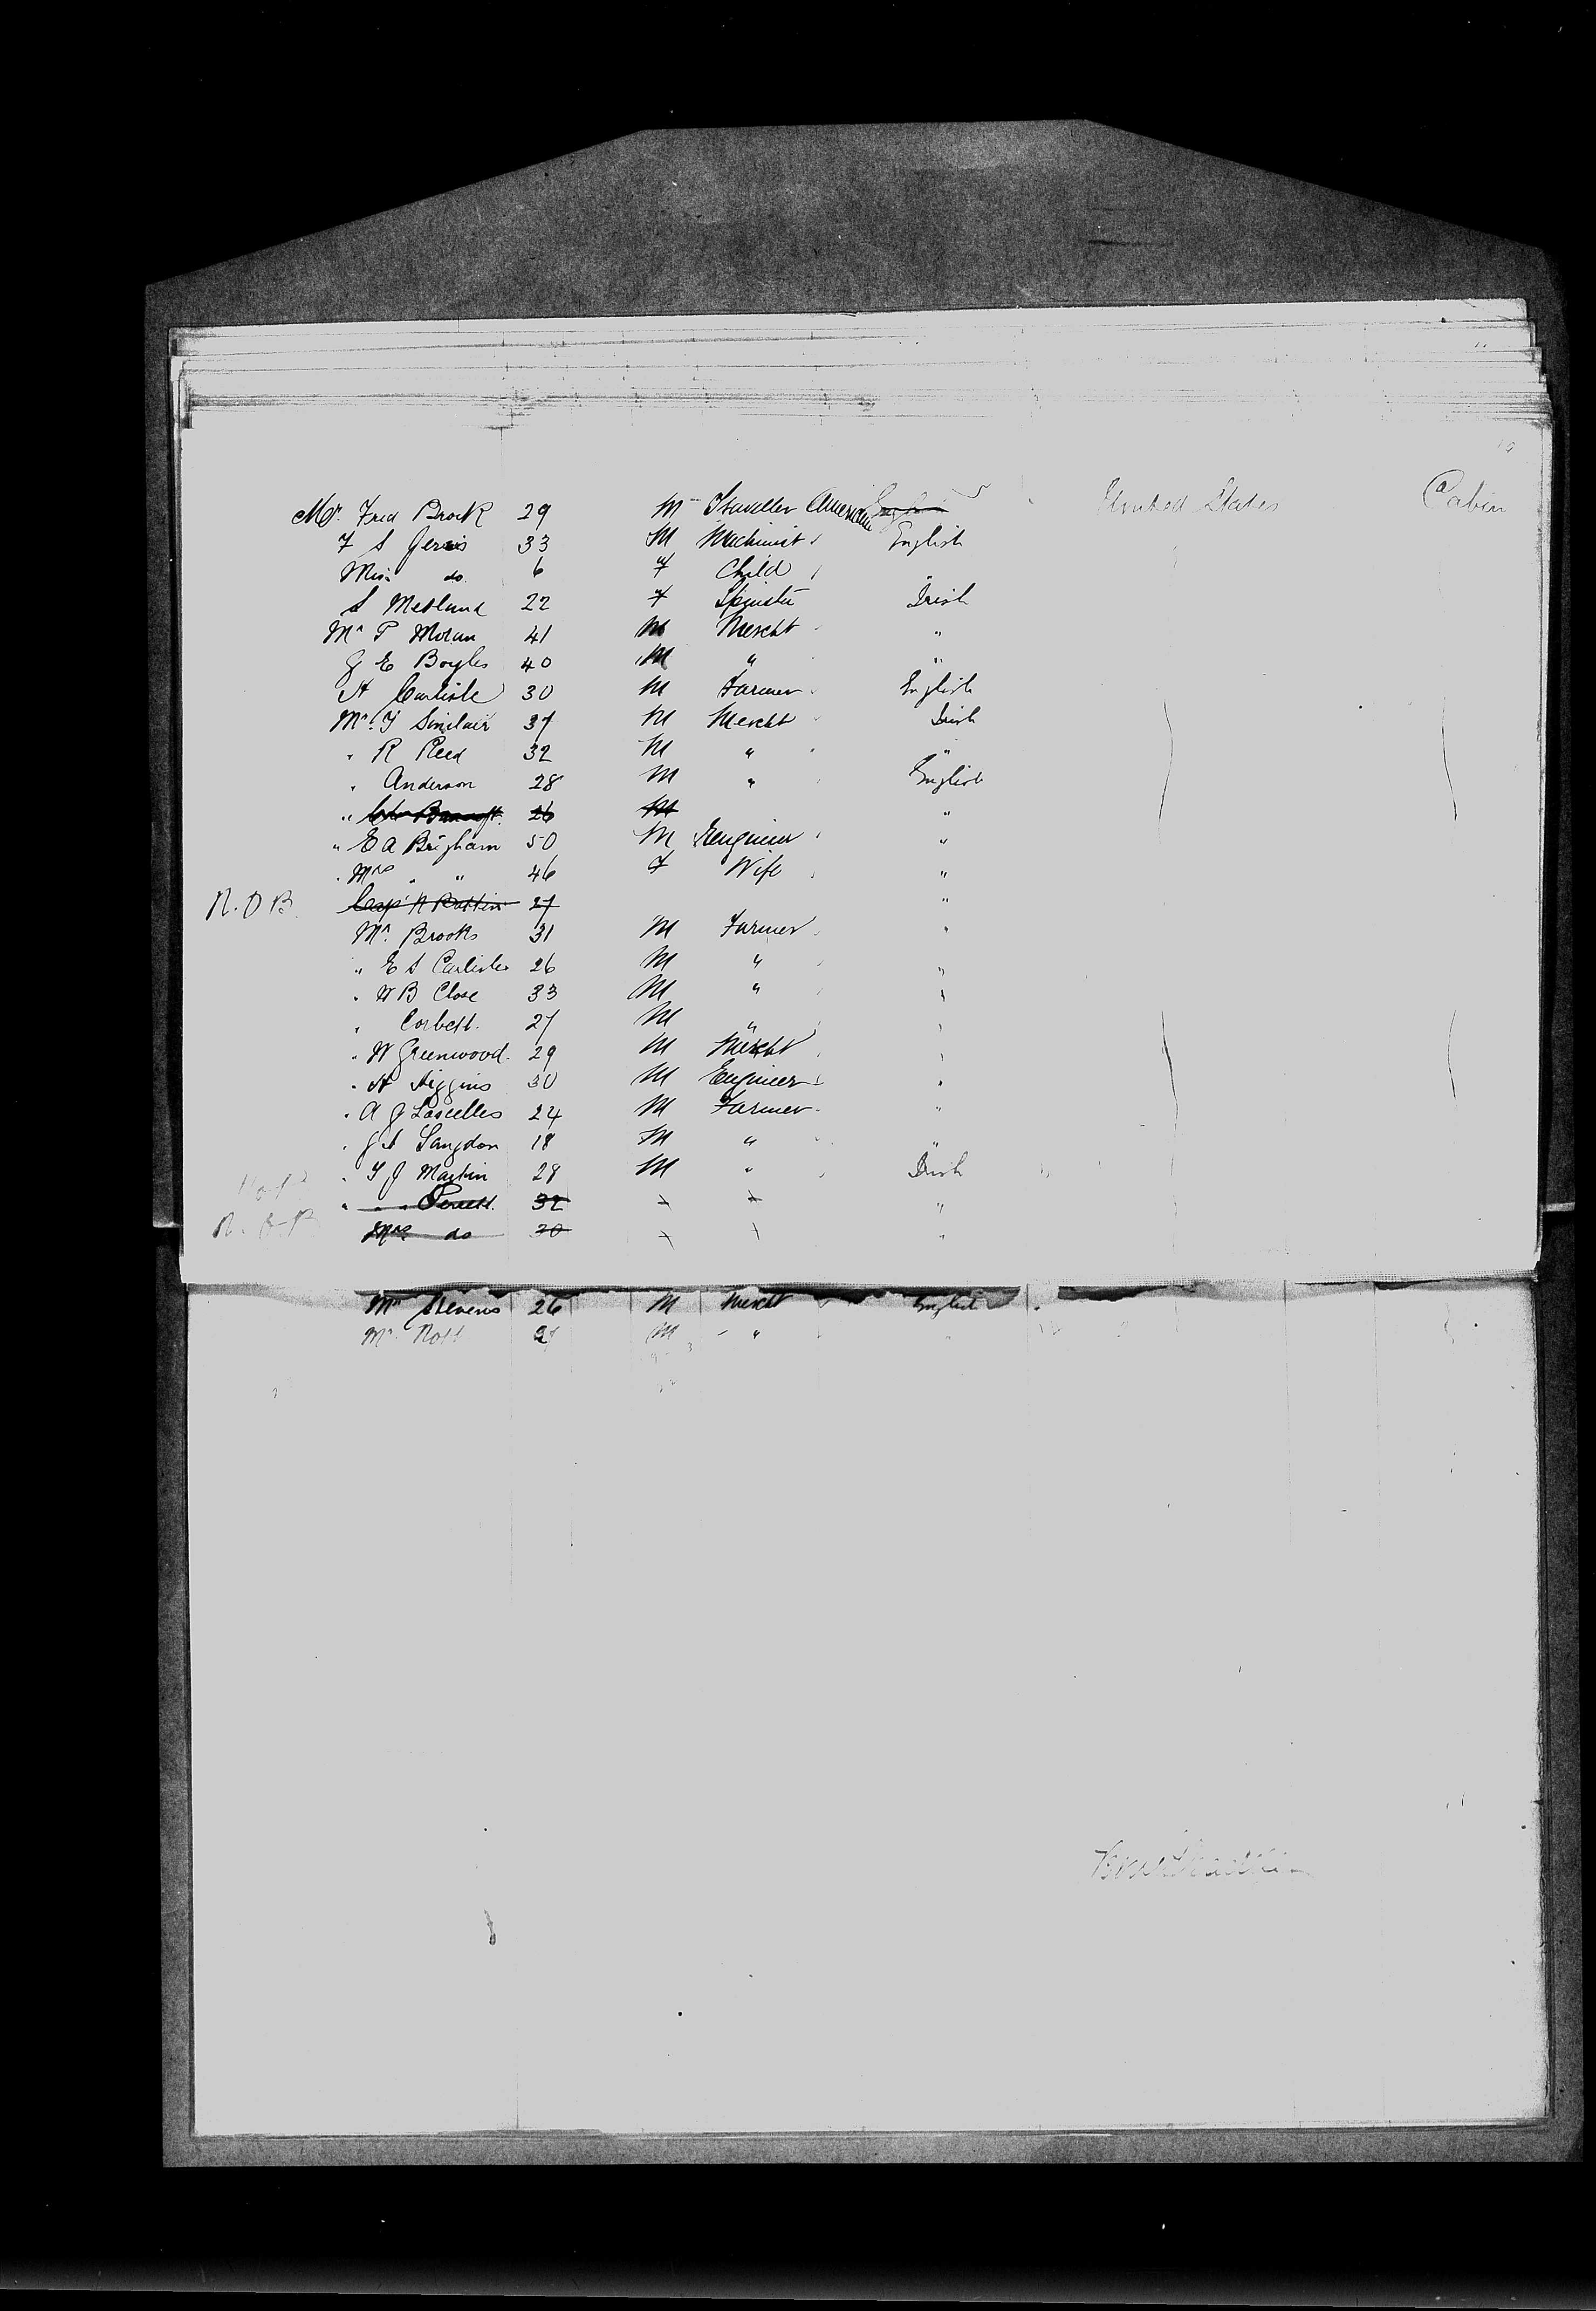 Mr. Fred Brock 29 M Traveller American English United States Cabin
F S Jervis 33 M Machinist English
Miss do. 6 F Child "
S Metland 22 F Spinster Irish
Mr P Moran 41 M Mercht "
J E Boyles 40 M " "
H Carlisle 30 M Farmer English
Mr. J Sinclair 37 M Mercht Irish
" R Reed 32 M " "
" Anderson 28 M " English
" Bancroft 26 M "
" E A Brigham 50 M Engineer "
" Mrs " " 46 F Wife "
N.O.B. Capt 27 "
Mr. Brooks 31 M Farmer "
" E S Carlisle 26 M " "
" W B Close 33 M " "
" Corbett. 27 M " "
" W Greenwood. 29 M Mercht "
" H Higgins 30 M Engineer "
" A G Lascelles 24 M Farmer "
" J S Langdon 18 M " "
" T J Martin 28 M " Irish
" " 32 "
Mrs do 30 "
Mr Stevens 26 M Mercht English
Mr. Nott M "